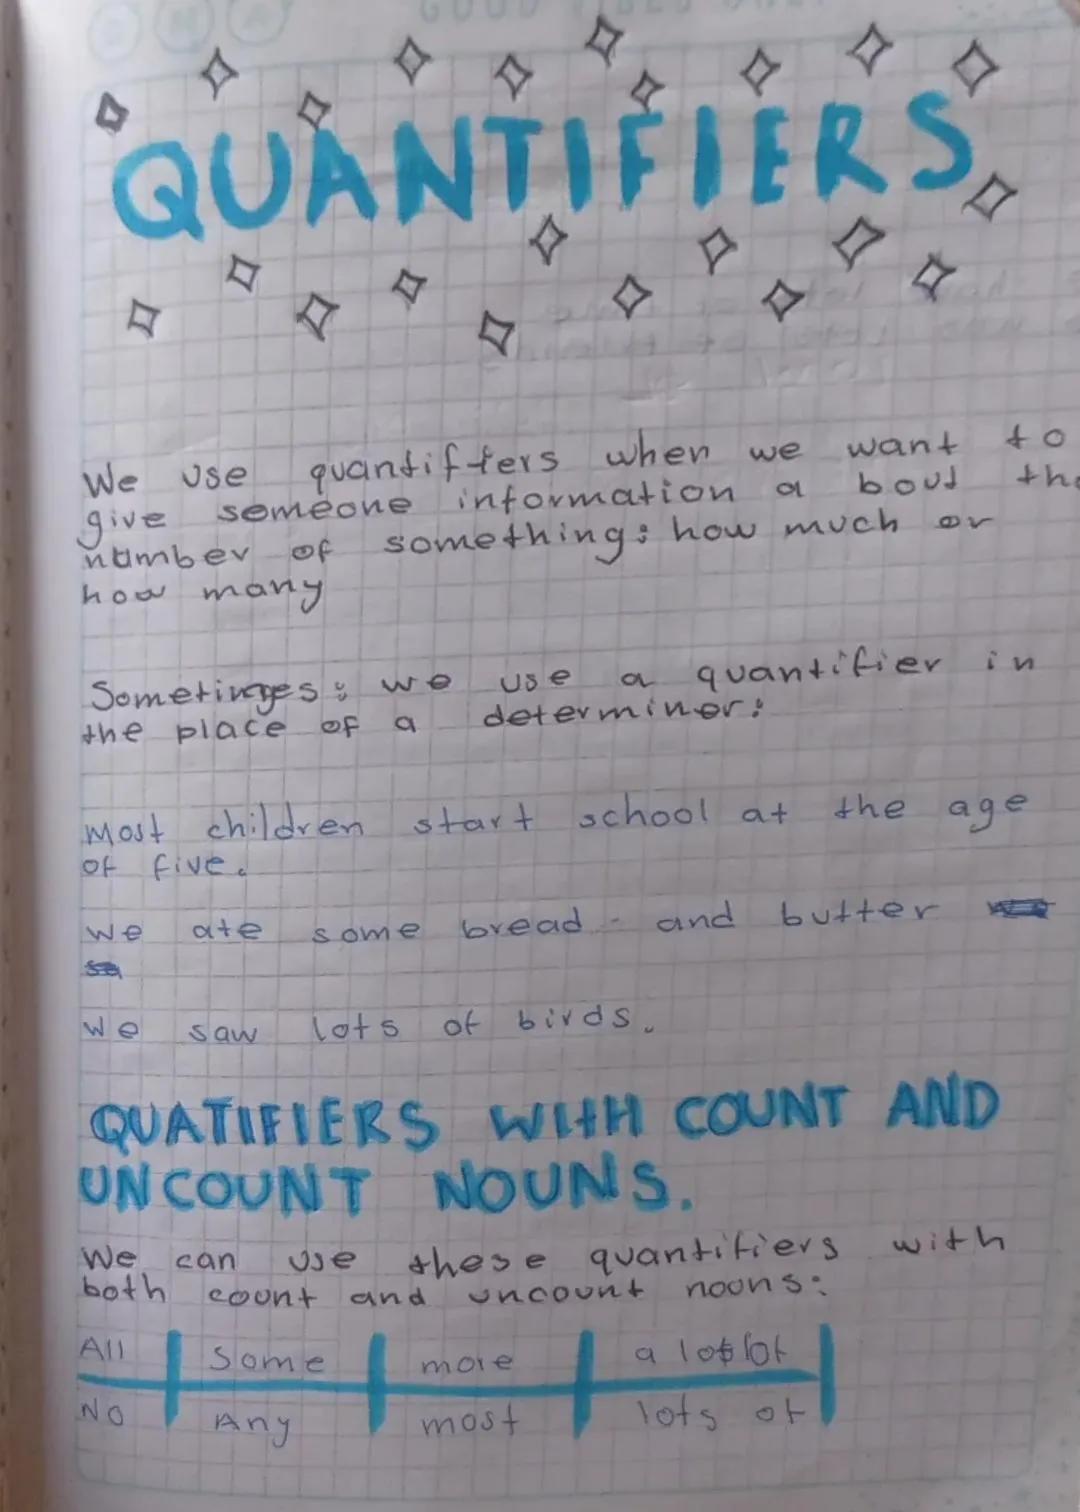 QUANTIFIERS
We use quantifiers when we want to
give someone information a bout the
number of something: how much or
how many
Sometimes: we use a quantifier in
the place of a determiner:
Most children start school at the age
of five.
We ate some bread - and butter
We saw lots of birds.
QUATIFIERS WITH COUNT AND
UNCOUNT NOUNS.
We can use these quantifiers with
both count and uncount nouns:
All Some more a lot of
NO Any most lots of